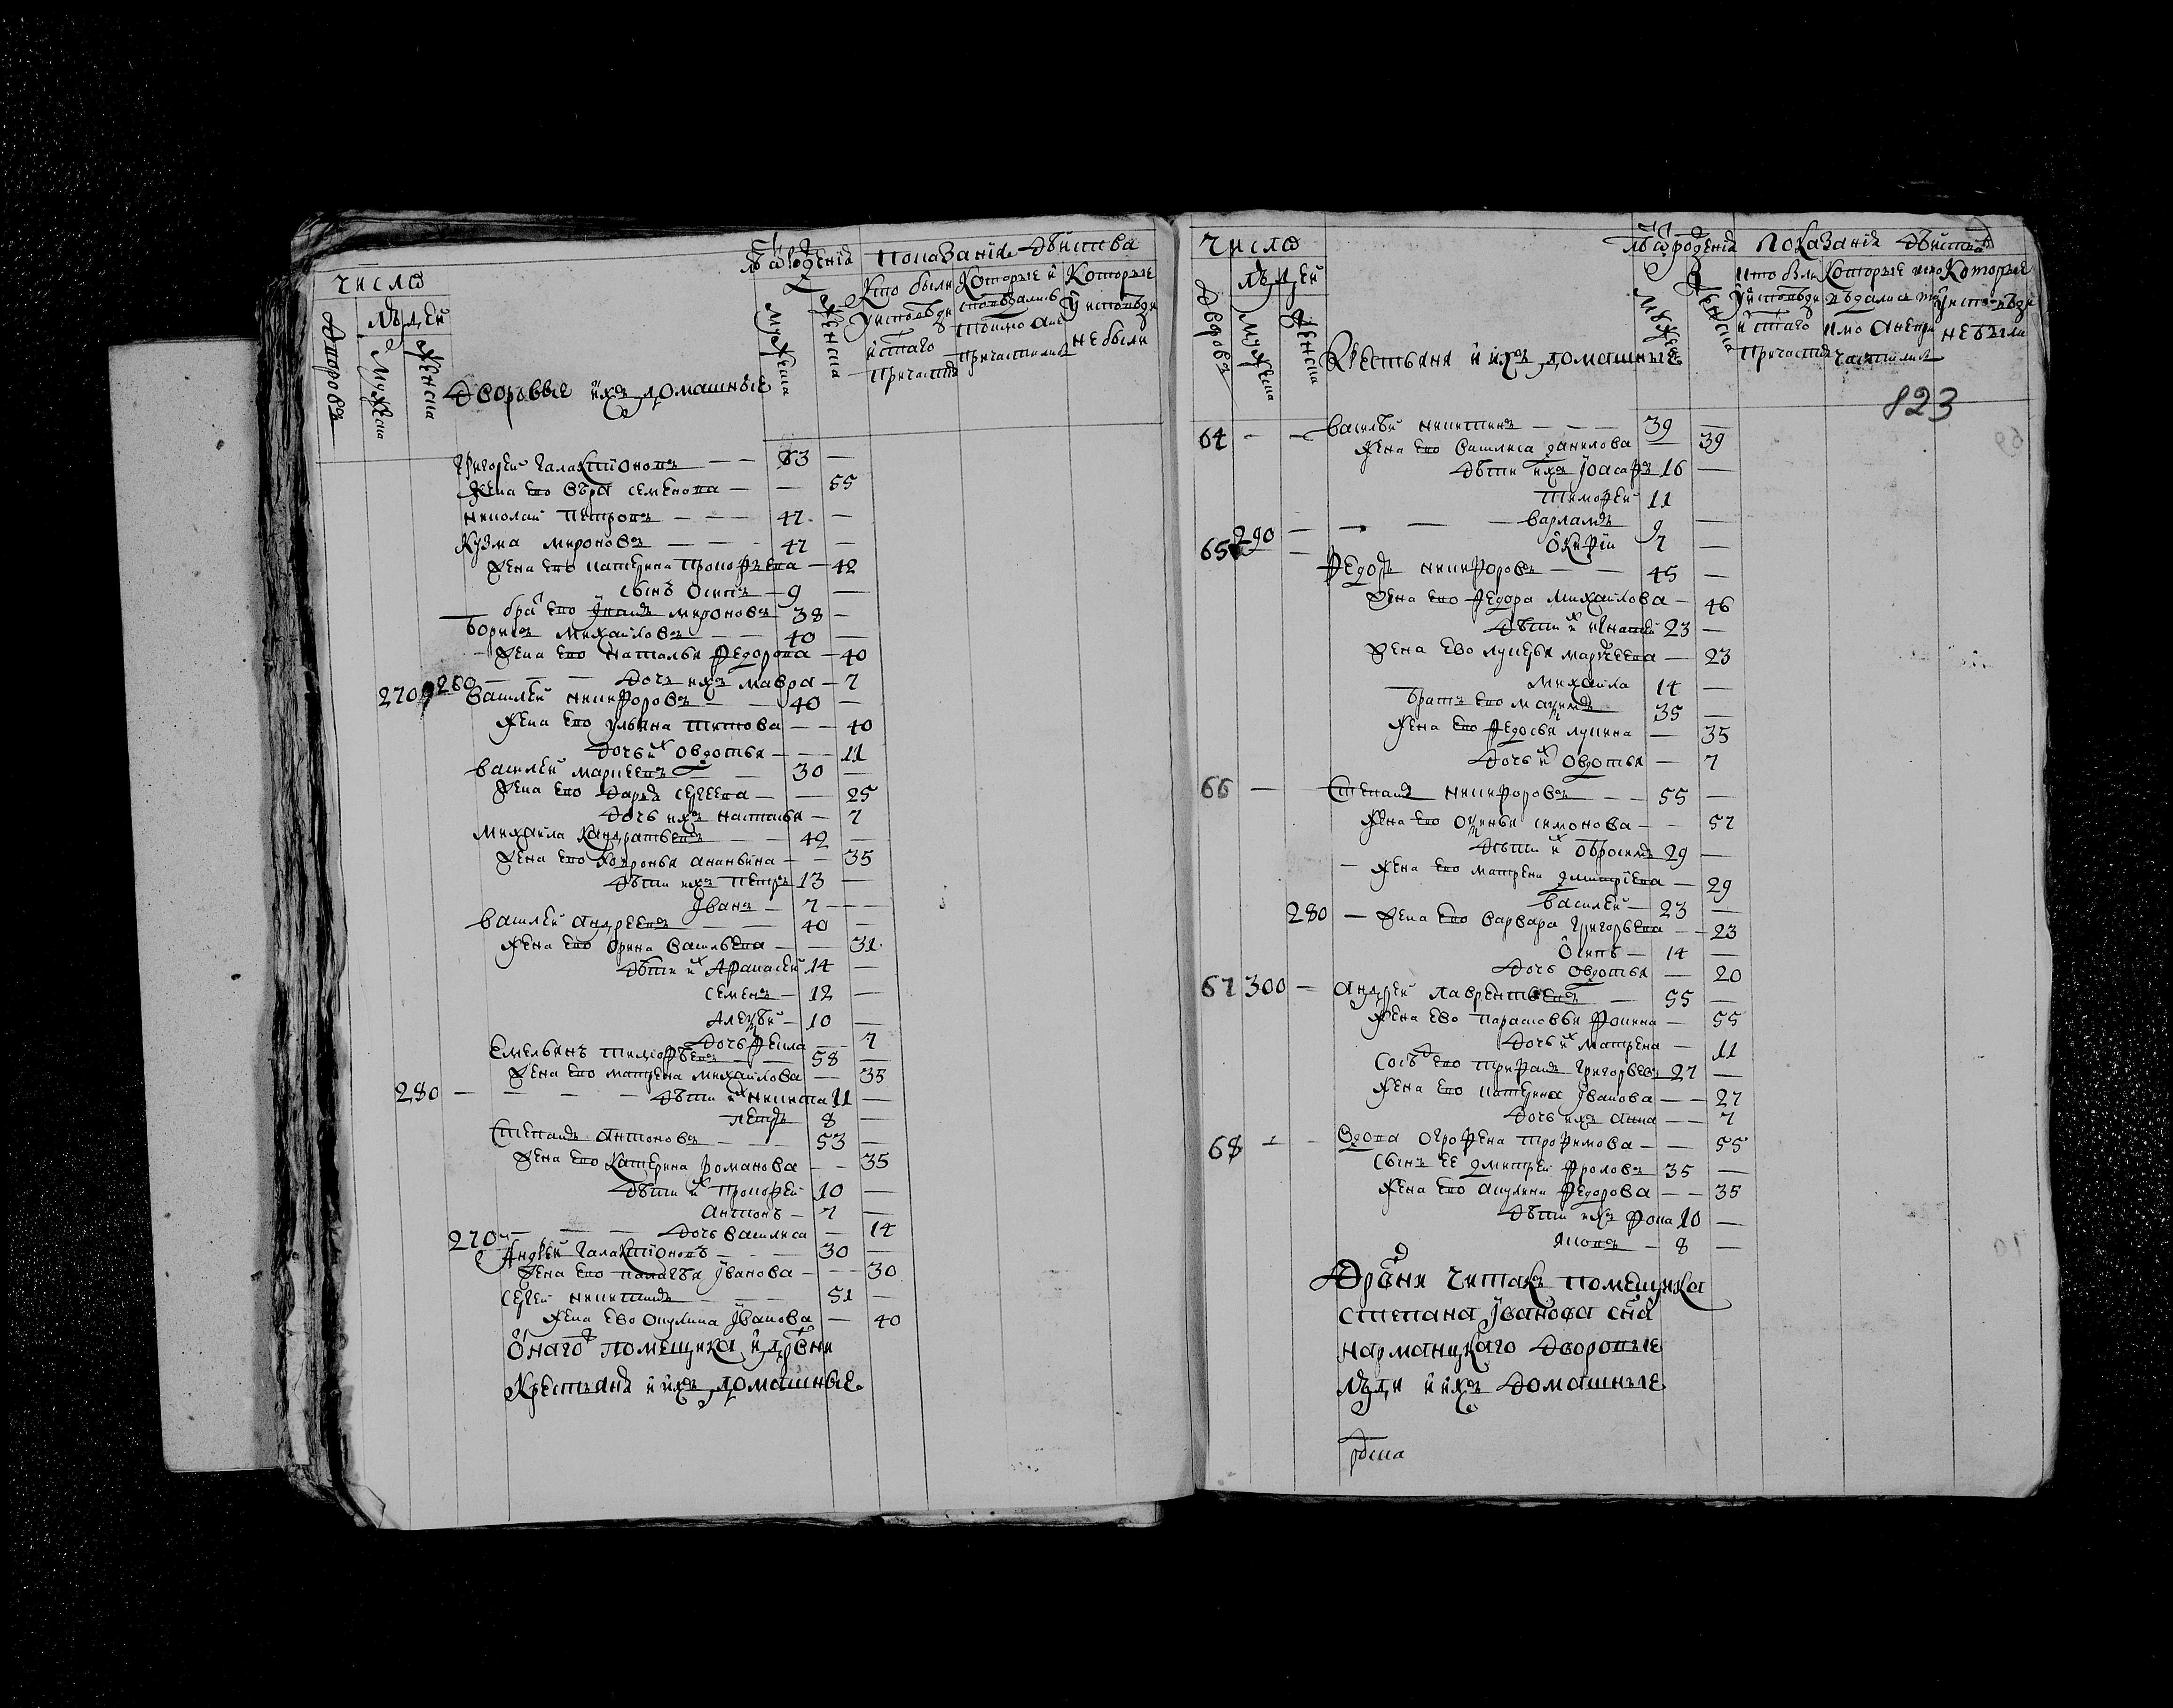 число
людей
Дворовъ
мужеска
женска
Дворовые ихъ домашные
лѣта от рождения
мужеска
женска
показание действа
Кто были у исповеди и стаго причастия
Которые исповедались токмо а не причастились
Которые у исповеди не были
Григорей Галактионовъ — — 63 —
Жена ево Вера Семенова — — 55
Николай Петровъ — — — 47 —
Кузма мироновъ — — — 47 —
Жена ево катерина Прокофьева — 42
сынъ Осипъ — 9 —
брат ево мироновъ 38 —
Борисъ Михайловъ — — 40 —
Жена ево наталья Федорова — 40
260 — — — Дочь ихъ мавра — 7
270 Василей никифоровъ — — 40 —
Жена ево ульяна титова — — 40
Дочь их овдотья — — 11
василей маркеевъ — — 30 —
Жена ево Дарья сергеева — — 25
Дочь ихъ настасья — 7
михайла Кандратьевъ — — 42 —
Жена ево ховронья ананьина — — 35
дѣти ихъ петръ 13 —
Иванъ — 7 — —
василей андреевъ — — 40 —
Жена ево орина васильева — — 31
дѣти их Афанасей 14 —
семенъ — 12 —
Алексѣй — 10 —
Дочь Фекла — 7
Емельянъ тимофѣевъ — — 58 —
Жена ево матрена михайлова — 35
280 — — — — дѣти их никита 11 —
петръ 8 —
Степанъ антоновъ — — — 53 —
Жена ево катерина романова — — 35
дѣти их прокофей 10 —
антонъ — 7 —
270 — — — Дочь василиса — 14
Андрей Галактионовъ — — — 30 —
Жена ево палагѣя Иванова — — 30
сергей никитинъ — — — 51 —
Жена ево окулина Иванова — 40
Онаго помещика и дрвни
Крестьяня и ихъ домашные
число
людей
Дворовъ
мужеска
женска
Крестьяня и ихъ домашные
лѣта от рождения
мужеска
женска
показания действа
Кто были у исповеди и стаго причастия
Которые исповѣдались токмо а не причастились
Которые у исповѣди не были
823
64 — — василѣй никитинъ — — — 39 —
Жена ево василиса данилова 39
Дѣти ихъ Иоасафъ 16 —
тимофей 11
290 — — — — варламъ 9 —
7 —
65 — Федоръ никифоровъ — — 45 —
Жена ево Федора михайлова — 46
дѣти их игнатей 23 —
Жена ево лукерья — 23
михайла 14 —
братъ ево 35 —
Жена ево Федосья лукина — 35
Дочь их овдотья — 7
66 — Степанъ никифоровъ — — 55 —
Жена ево симонова — — 57
Дѣти их обросимъ 29 —
— Жена ево матрена дмитриева — 29
василей — 23 —
280 — Жена ево варвара григорьева — — 23
Осипъ — 14 —
Дочь овдотья — 20
67 300 — андрей лаврентьевъ — 55 —
Жена ево парасковья фокина — 55
Дочь их матрена — 11
сосѣд ево трифанъ григорьевъ 27 —
Жена ево катерина Иванова — — 27
Дочь ихъ анна — — 7
68 — — вдова огрофена трофимова — — 55
сынъ ее дмитрей фроловъ 35 —
Жена ево акулина Федорова — — 35
Дѣти ихъ фока 10 —
яковъ — 8 —
Дрвни Читакъ помещика
степана Иванова сна
нармацкаго Дворовые
люди и ихъ Домашные